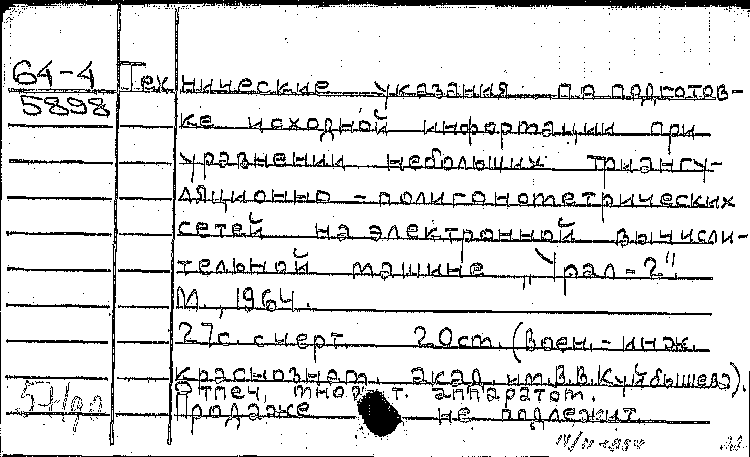 64-4 Технические указания по подготов-
5898 ке исходной информации при
уравнении небольших триангу-
ляционно-полигонометрических
сетей на электронной вычисли-
тельной машине „Урал-2".
М., 1964.
27с. с черт. 20см. (Воен.-инж.
краснознам. акад. им. В.В. Куйбышева).
Отпеч. множ. т. аппаратом.
Продаже не подлежит.